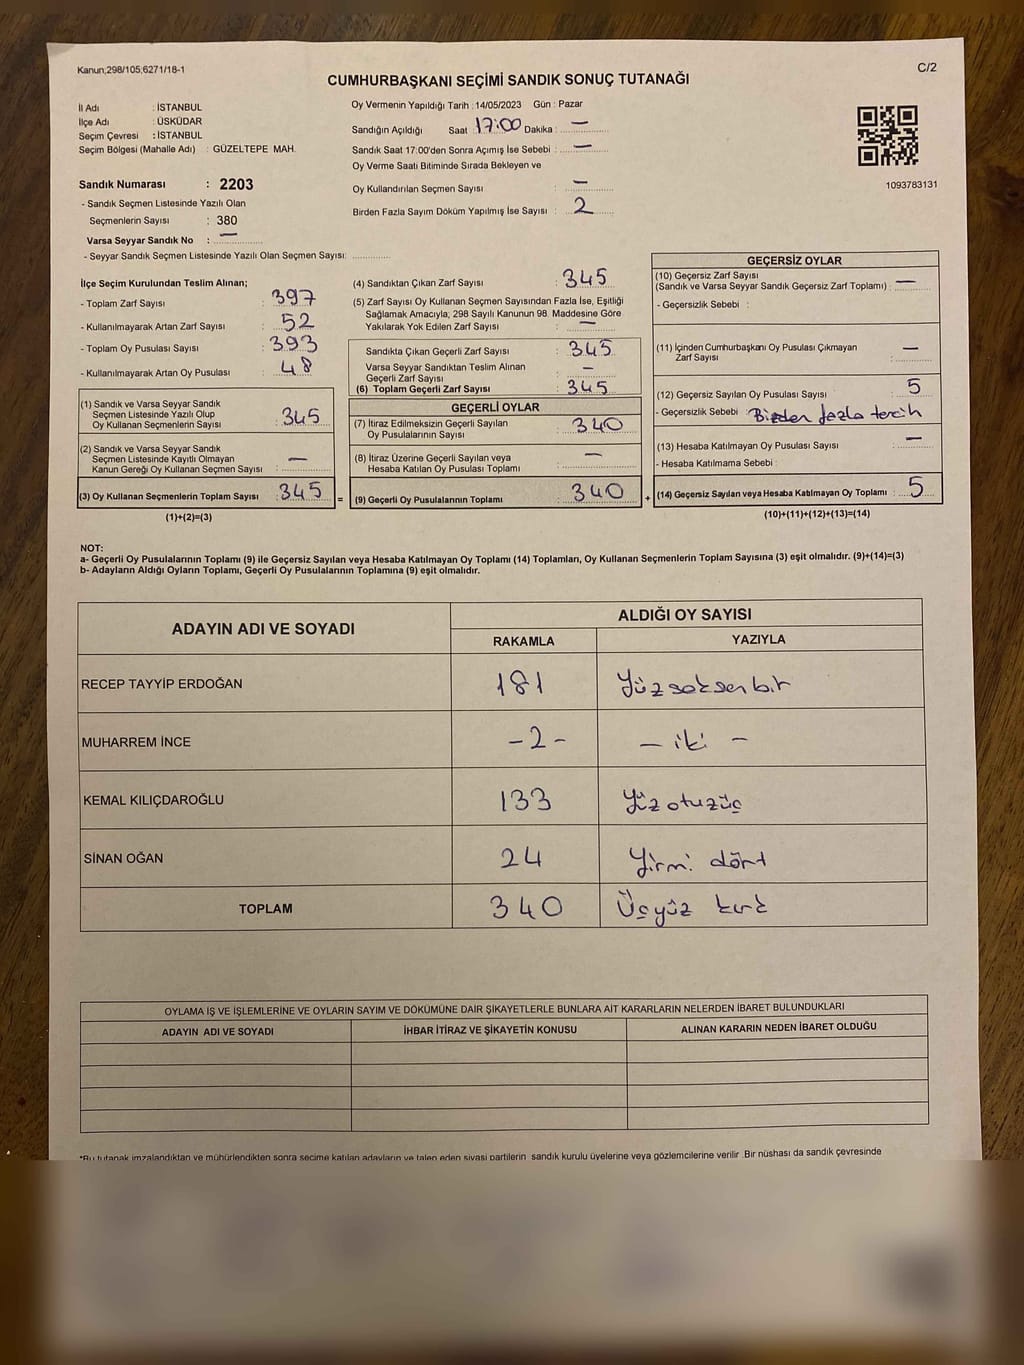 Kanun;298/105;6271/18-1
C/2
CUMHURBAŞKANI SEÇİMİ SANDIK SONUÇ TUTANAĞI
İl Adı : İSTANBUL
İlçe Adı : ÜSKÜDAR
Seçim Çevresi : İSTANBUL
Seçim Bölgesi (Mahalle Adı) : GÜZELTEPE MAH.
Sandık Numarası : 2203
- Sandık Seçmen Listesinde Yazılı Olan
Seçmenlerin Sayısı : 380
Varsa Seyyar Sandık No : —
- Seyyar Sandık Seçmen Listesinde Yazılı Olan Seçmen Sayısı:
Oy Vermenin Yapıldığı Tarih : 14/05/2023 Gün : Pazar
Sandığın Açıldığı Saat 17:00 Dakika : —
Sandık Saat 17:00'den Sonra Açımış İse Sebebi : —
Oy Verme Saati Bitiminde Sırada Bekleyen ve
Oy Kullandırılan Seçmen Sayısı : —
Birden Fazla Sayım Döküm Yapılmış İse Sayısı : 2
1093783131
İlçe Seçim Kurulundan Teslim Alınan;
- Toplam Zarf Sayısı : 397
- Kullanılmayarak Artan Zarf Sayısı : 52
- Toplam Oy Pusulası Sayısı : 393
- Kullanılmayarak Artan Oy Pusulası : 48
(1) Sandık ve Varsa Seyyar Sandık
Seçmen Listesinde Yazılı Olup
Oy Kullanan Seçmenlerin Sayısı : 345
(2) Sandık ve Varsa Seyyar Sandık
Seçmen Listesinde Kayıtlı Olmayan
Kanun Gereği Oy Kullanan Seçmen Sayısı : —
(3) Oy Kullanan Seçmenlerin Toplam Sayısı : 345
(1)+(2)=(3)
(4) Sandıktan Çıkan Zarf Sayısı : 345
(5) Zarf Sayısı Oy Kullanan Seçmen Sayısından Fazla İse, Eşitliği
Sağlamak Amacıyla; 298 Sayılı Kanunun 98. Maddesine Göre
Yakılarak Yok Edilen Zarf Sayısı : —
Sandıkta Çıkan Geçerli Zarf Sayısı : 345
Varsa Seyyar Sandıktan Teslim Alınan
Geçerli Zarf Sayısı : —
(6) Toplam Geçerli Zarf Sayısı : 345
GEÇERLİ OYLAR
(7) İtiraz Edilmeksizin Geçerli Sayılan
Oy Pusulalarının Sayısı : 340
(8) İtiraz Üzerine Geçerli Sayılan veya
Hesaba Katılan Oy Pusulası Toplamı : —
= (9) Geçerli Oy Pusulalarının Toplamı : 340
GEÇERSİZ OYLAR
(10) Geçersiz Zarf Sayısı
(Sandık ve Varsa Seyyar Sandık Geçersiz Zarf Toplamı) : —
- Geçersizlik Sebebi :
(11) İçinden Cumhurbaşkanı Oy Pusulası Çıkmayan
Zarf Sayısı : —
(12) Geçersiz Sayılan Oy Pusulası Sayısı : 5
- Geçersizlik Sebebi : Birden fazla tercih
(13) Hesaba Katılmayan Oy Pusulası Sayısı : —
- Hesaba Katılmama Sebebi :
+ (14) Geçersiz Sayılan veya Hesaba Katılmayan Oy Toplamı : 5
(10)+(11)+(12)+(13)=(14)
NOT:
a- Geçerli Oy Pusulalarının Toplamı (9) ile Geçersiz Sayılan veya Hesaba Katılmayan Oy Toplamı (14) Toplamları, Oy Kullanan Seçmenlerin Toplam Sayısına (3) eşit olmalıdır. (9)+(14)=(3)
b- Adayların Aldığı Oyların Toplamı, Geçerli Oy Pusulalarının Toplamına (9) eşit olmalıdır.
ADAYIN ADI VE SOYADI
ALDIĞI OY SAYISI
RAKAMLA YAZIYLA
RECEP TAYYİP ERDOĞAN 181 Yüzseksenbir
MUHARREM İNCE -2- — iki —
KEMAL KILIÇDAROĞLU 133 Yüzotuzüç
SİNAN OĞAN 24 Yirmi dört
TOPLAM 340 Üçyüz kırk
OYLAMA İŞ VE İŞLEMLERİNE VE OYLARIN SAYIM VE DÖKÜMÜNE DAİR ŞİKAYETLERLE BUNLARA AİT KARARLARIN NELERDEN İBARET BULUNDUKLARI
ADAYIN ADI VE SOYADI İHBAR İTİRAZ VE ŞİKAYETİN KONUSU ALINAN KARARIN NEDEN İBARET OLDUĞU
*Bu tutanak imzalandıktan ve mühürlendikten sonra seçime katılan adayların ve talep eden siyasi partilerin sandık kurulu üyelerine veya gözlemcilerine verilir. Bir nüshası da sandık çevresinde